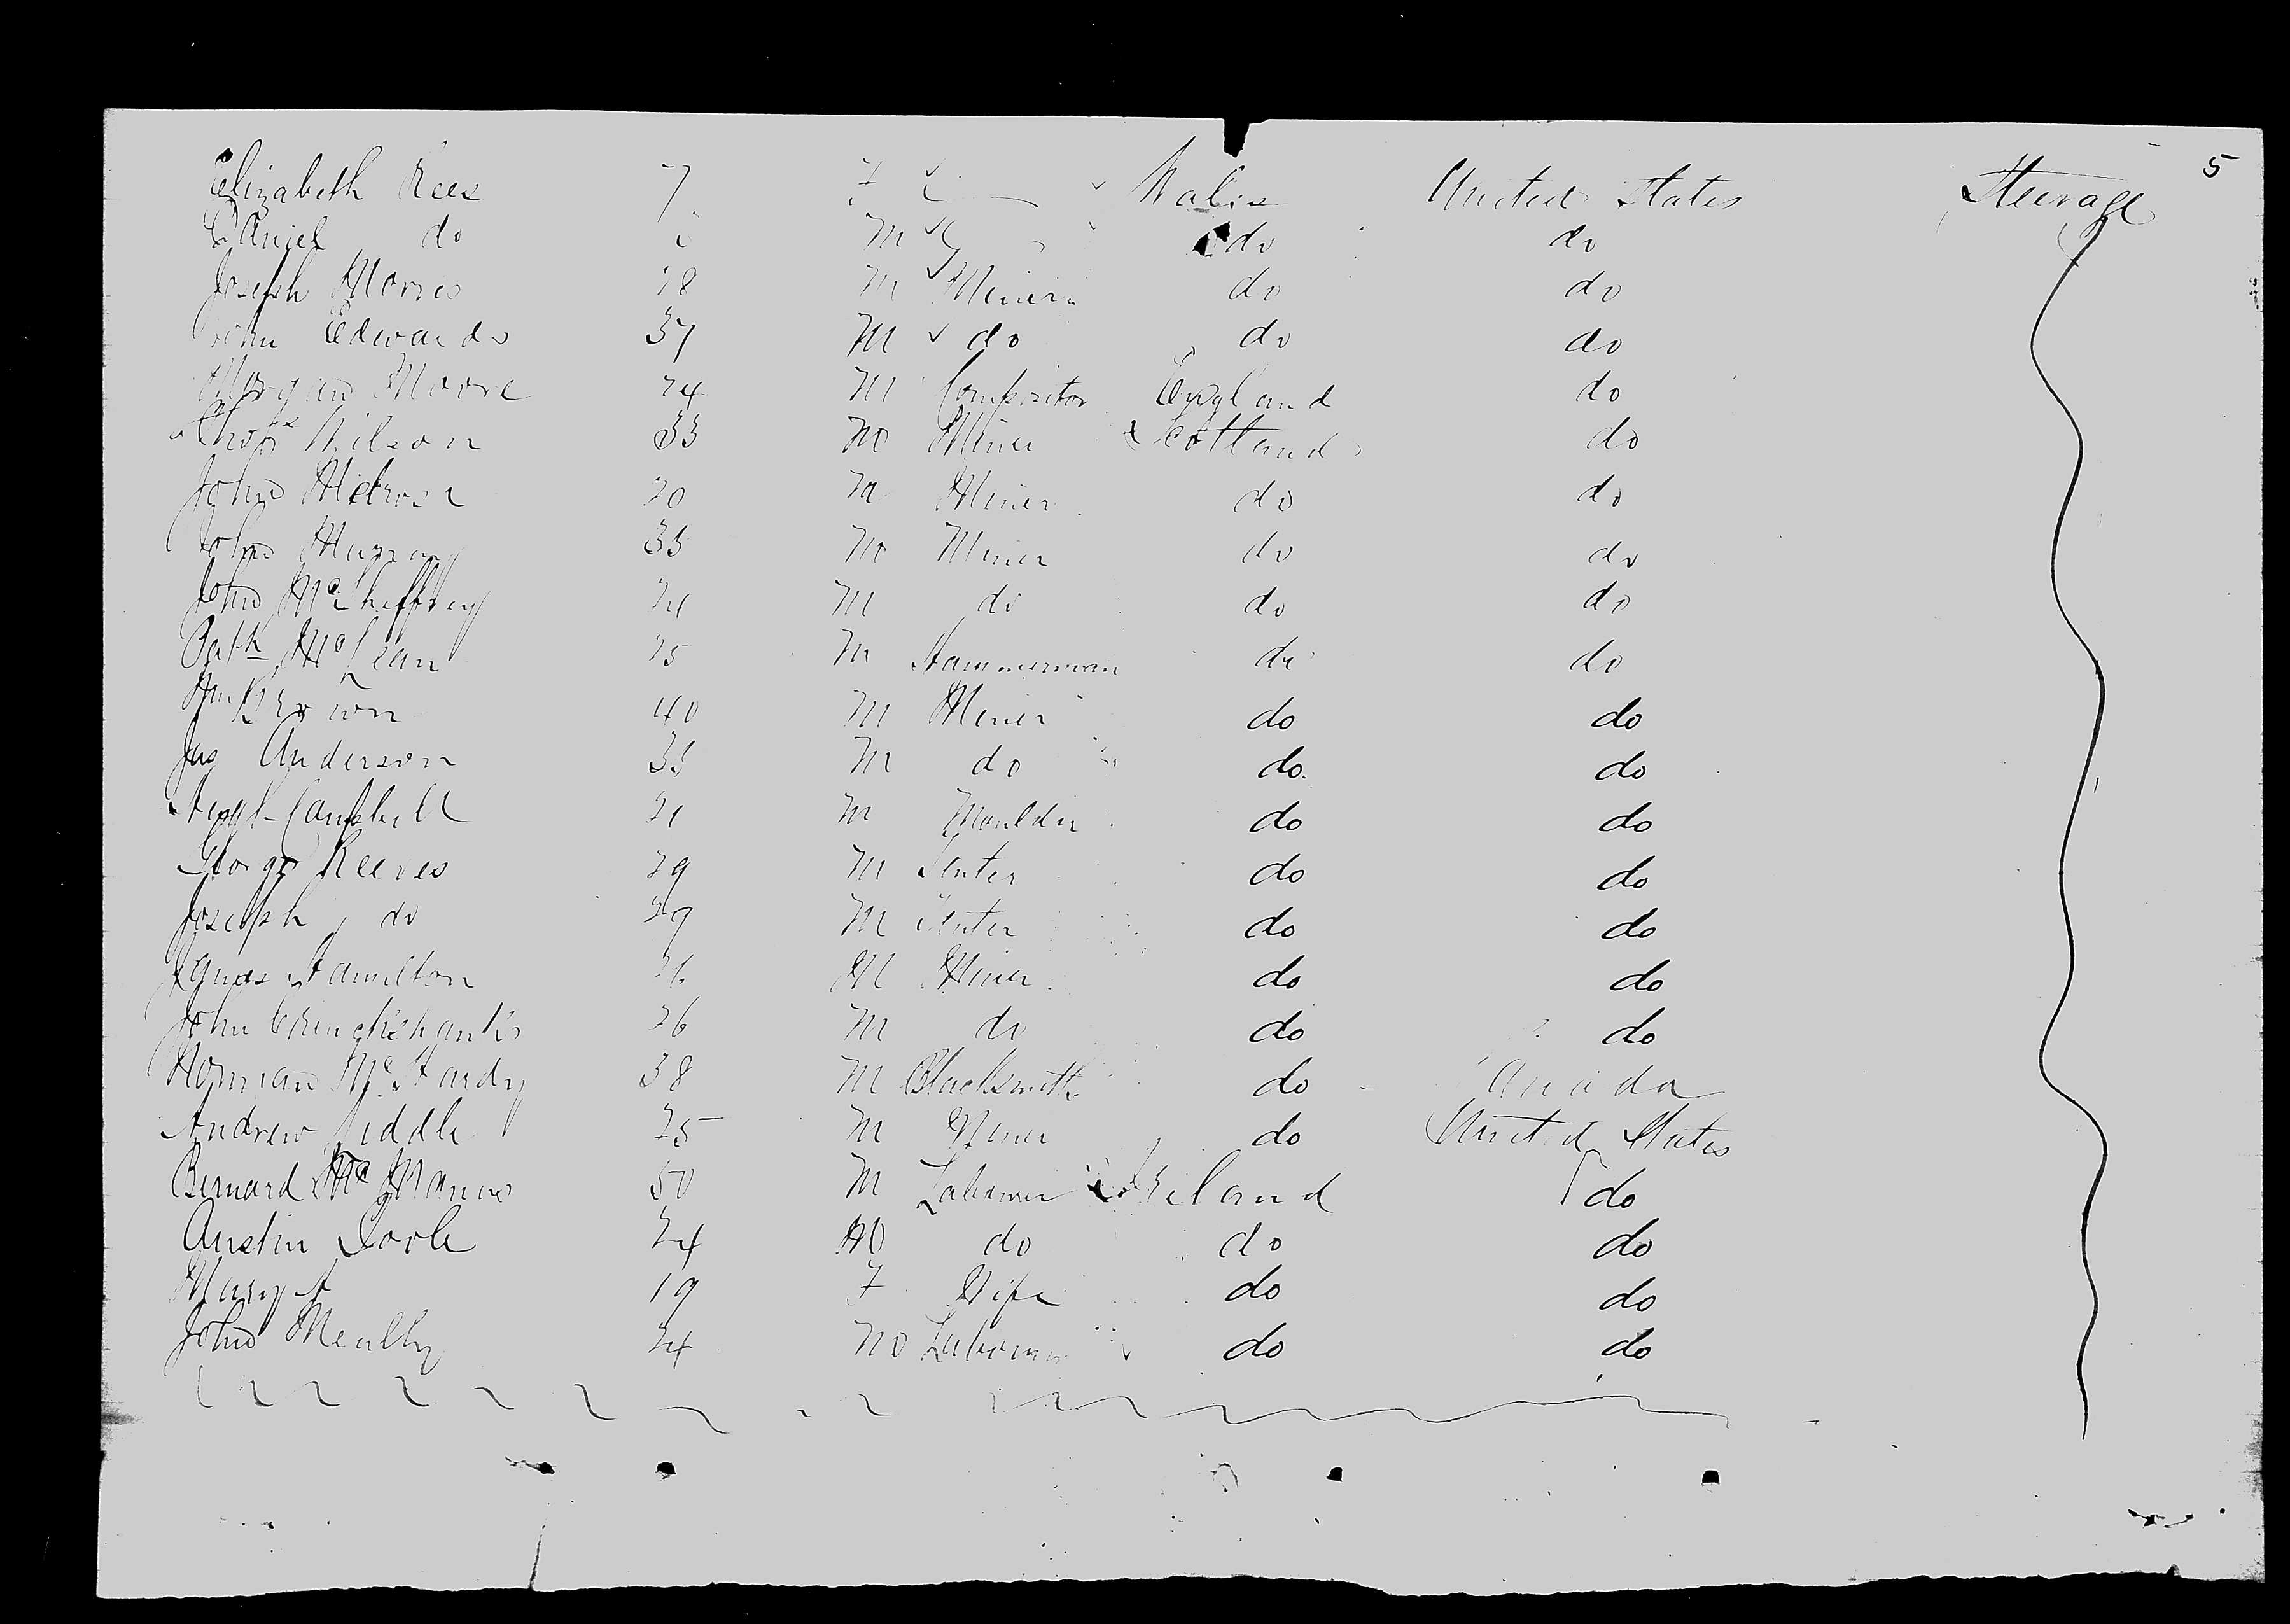 5
Elizabeth Rees 7 F Wales United States Steerage
Daniel do M do do
Joseph Morris 28 M Miner do do
John Edwards 37 M do do do
Morgan Moore 24 M Compositor England do
Thos Wilson 33 M Miner Scotland do
John Melrose 20 M Miner do do
John Murray 33 M Miner do do
John McSheffrey 24 M do do do
Patk McLean 25 M Hammerman do do
Wm Brown 40 M Miner do do
Jas Anderson M do do do
Campbell 21 M Moulder do do
George Reeves 29 M do do
Joseph do 29 M do do
James Hamilton 26 M Miner do do
John Cruickshanks 26 M do do do
Norman McHardy 38 M Blacksmith do Canada
Andrew Liddle 25 M Miner do United States
Bernard McManus 50 M Labourer Ireland do
Austin Toole 24 M do do do
Margt 19 F Wife do do
John 24 M Labourer do do